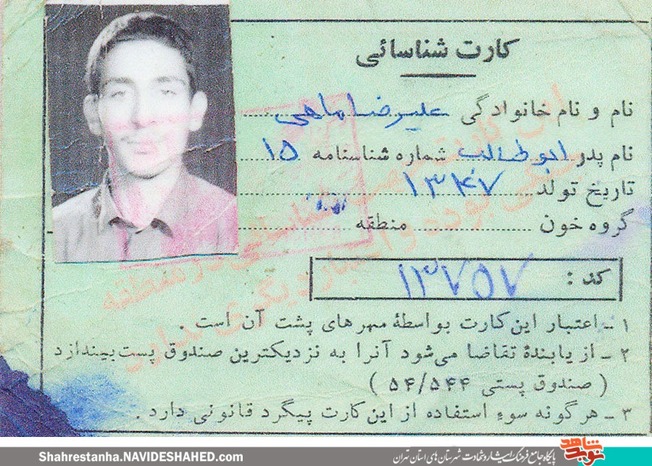 کارت شناسائی
نام و نام خانوادگی علیرضا ماهی
نام پدر ابوطالب شماره شناسنامه ۱۵
تاریخ تولد ۱۳۴۷
گروه خون منطقه
کد : ۱۳۷۵۷
۱ - اعتبار این کارت بواسطهٔ مهرهای پشت آن است .
۲ - از یابندهٔ تقاضا می‌شود آنرا به نزدیکترین صندوق پست بیندازد
( صندوق پستی ۵۴/۵۴۴ )
۳ - هرگونه سوء استفاده از این کارت پیگرد قانونی دارد .
Shahrestanha.NAVIDESHAHED.com
پایگاه جامع فرهنگ ایثار و شهادت شهرستان های استان تهران
نوید شاهد